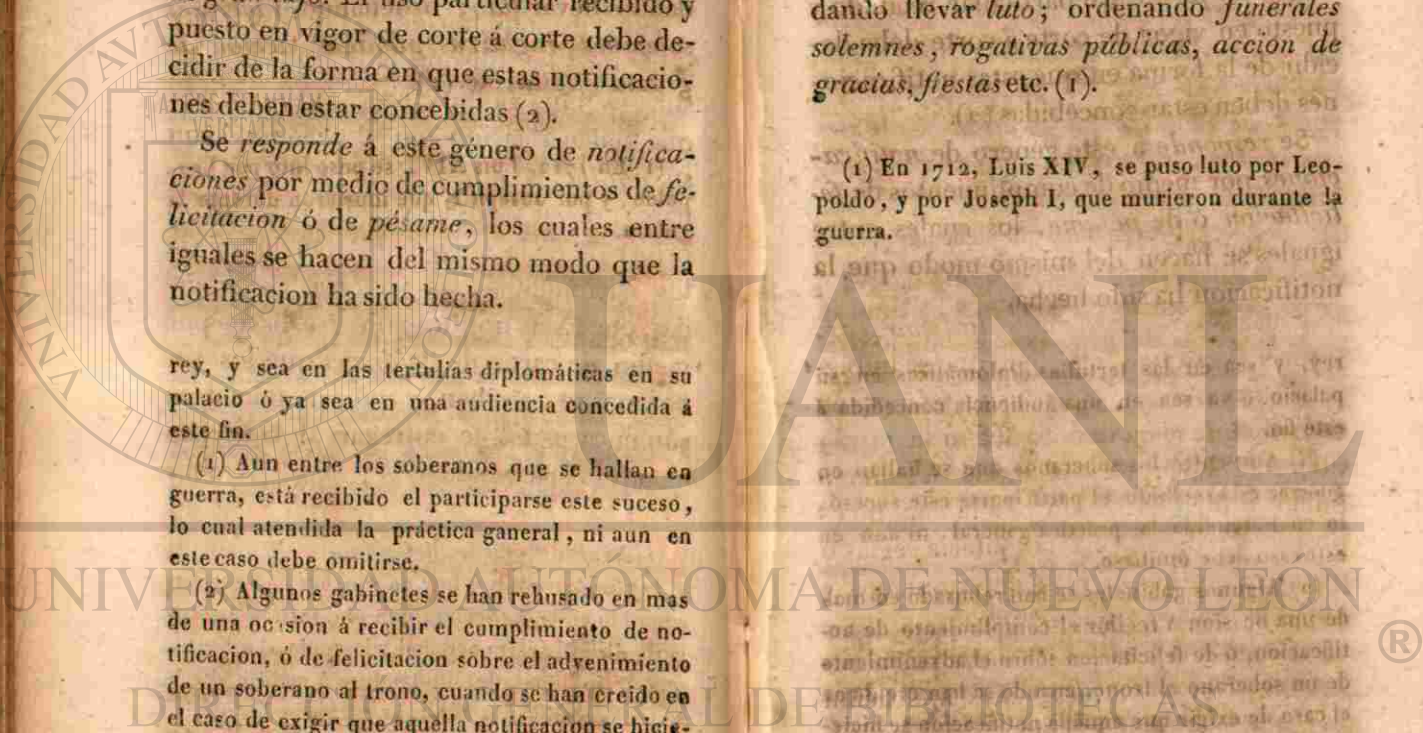 puesto en vigor de corte á corte debe de-
cidir de la forma en que estas notificacio-
nes deben estar concebidas (2).
Se responde á este género de notifica-
ciones por medio de cumplimientos de fe-
licitacion ó de pésame, los cuales entre
iguales se hacen del mismo modo que la
notificacion ha sido hecha.
rey, y sea en las tertulias diplomáticas en su
palacio ó ya sea en una audiencia concedida á
este fin.
(1) Aun entre los soberanos que se hallan en
guerra, está recibido el participarse este suceso,
lo cual atendida la práctica ganeral, ni aun en
este caso debe omitirse.
(2) Algunos gabinetes se han rehusado en mas
de una ocasion á recibir el cumplimiento de no-
tificacion, ó de felicitacion sobre el advenimiento
de un soberano al trono, cuando se han creido en
el caso de exigir que aquella notificacion se hicie-
dando llevar luto; ordenando funerales
solemnes, rogativas públicas, accion de
gracias, fiestas etc. (1).
(1) En 1712, Luis XIV, se puso luto por Leo-
poldo, y por Joseph I, que murieron durante la
guerra.
UANL
UNIVERSIDAD AUTÓNOMA DE NUEVO LEÓN
®
DIRECCIÓN GENERAL DE BIBLIOTECAS